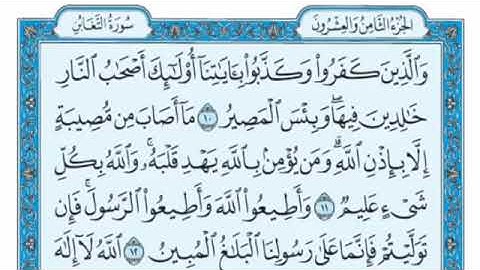 الجزء الثامن والعشرون سورة التغابن
وَالَّذِينَ كَفَرُوا۟ وَكَذَّبُوا۟ بِـَٔايَـٰتِنَآ أُو۟لَـٰٓئِكَ أَصْحَـٰبُ النَّارِ
خَـٰلِدِينَ فِيهَا ۖ وَبِئْسَ الْمَصِيرُ ١٠ مَآ أَصَابَ مِن مُّصِيبَةٍ
إِلَّا بِإِذْنِ اللَّهِ ۗ وَمَن يُؤْمِنۢ بِاللَّهِ يَهْدِ قَلْبَهُۥ ۚ وَاللَّهُ بِكُلِّ
شَىْءٍ عَلِيمٌ ١١ وَأَطِيعُوا۟ اللَّهَ وَأَطِيعُوا۟ الرَّسُولَ ۚ فَإِن
تَوَلَّيْتُمْ فَإِنَّمَا عَلَىٰ رَسُولِنَا الْبَلَـٰغُ الْمُبِينُ ١٢ اللَّهُ لَآ إِلَـٰهَ